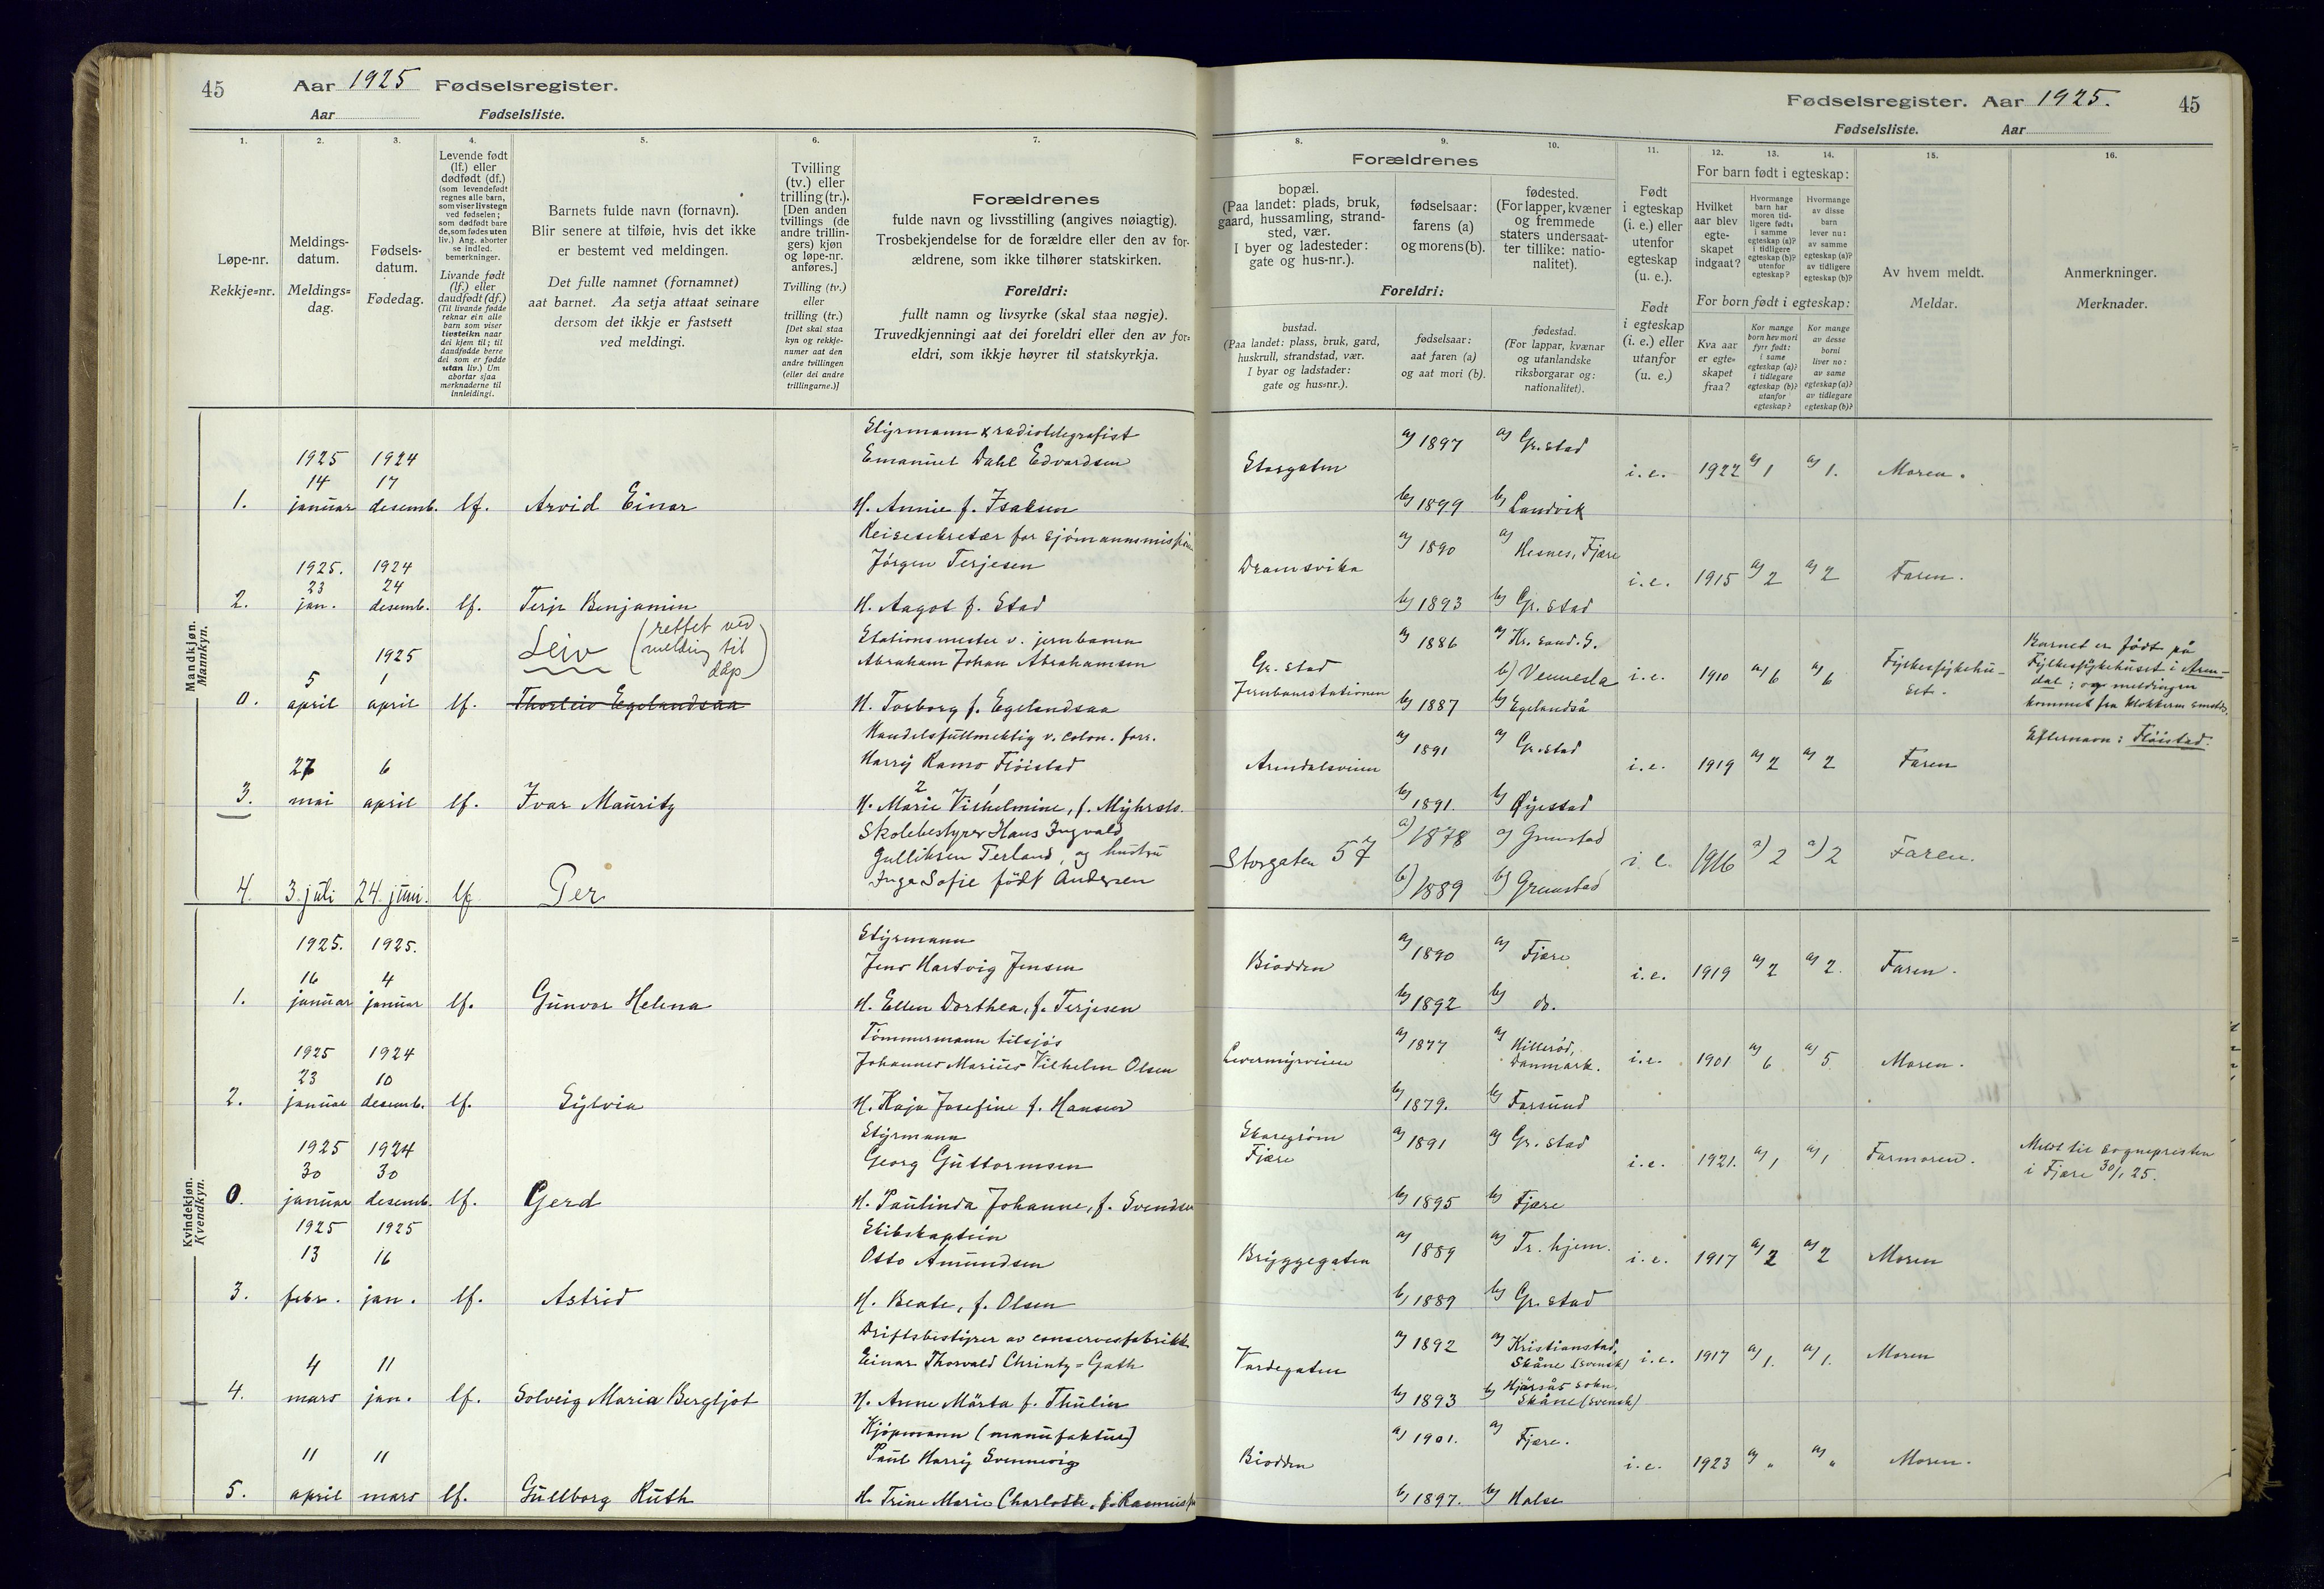 45 Aar 1925 Fødselsregister.
Aar Fødselsliste.
Fødselsregister. Aar 1925. 45
Fødselsliste. Aar
1. 2. 3. 4. 5. 6. 7.
Løpe-nr.
Rekkje=nr.
Meldings-
datum.
Meldings=
dag.
Fødsels-
datum.
Fødedag.
Levende født
(lf.) eller
dødfødt (df.)
(som levendefødt
regnes alle barn,
som viser livstegn
ved fødselen;
som dødfødt bare
de, som fødes uten
liv.) Ang. aborter
se indled.
bemerkninger.
Livande født
(lf.) eller
daudfødt (df.)
(Til livande fødde
reknar ein alle
barn som viser
livsteikn naar
dei kjem til; til
daudfødde berre
dei som er fødde
utan liv.) Um
abortar sjaa
merknaderne til
innleidingi.
Barnets fulde navn (fornavn).
Blir senere at tilføie, hvis det ikke
er bestemt ved meldingen.
Det fulle namnet (fornamnet)
aat barnet. Aa setja attaat seinare
dersom det ikkje er fastsett
ved meldingi.
Tvilling
(tv.) eller
trilling (tr.).
[Den anden
tvillings (de
andre trillin-
gers) kjøn
og løpe-nr.
anføres.]
Tvilling (tv.)
eller
trilling (tr.)
[Det skal staa
kyn og rekkje-
numer aat den
andre tvillingen
(eller dei andre
trillingarne.)]
Forældrenes
fulde navn og livsstilling (angives nøiagtig).
Trosbekjendelse for de forældre eller den av for-
ældrene, som ikke tilhører statskirken.
Foreldri:
fullt namn og livsyrke (skal staa nøgje).
Truvedkjenningi aat dei foreldri eller den av for=
eldri, som ikkje høyrer til statskyrkja.
8. 9. 10. 11. 12. 13. 14. 15. 16.
Forældrenes
bopæl.
(Paa landet: plads, bruk,
gaard, hussamling, strand-
sted, vær.
I byer og ladesteder:
gate og hus-nr.).
fødselsaar:
farens (a)
og morens (b).
fødested.
(For lapper, kvæner
og fremmede
staters undersaat-
ter tillike: natio-
nalitet).
Foreldri:
bustad.
(Paa landet: plass, bruk, gard,
huskrull, strandstad, vær.
I byar og ladstader:
gate og hus=nr.).
fødselsaar:
aat faren (a)
og aat mori (b).
fødestad.
(For lappar, kvænar
og utanlandske
riksborgarar og:
nationalitet).
Født
i egteskap
(i. e.) eller
utenfor
egteskap
(u. e.).
Født
i egteskap
(i. e.) eller
utanfor
(u. e.)
For barn født i egteskap:
Hvilket
aar blev
egte-
skapet
indgaat?
Hvormange
barn har
moren tid-
ligere født:
i samme
egteskap (a)?
i tidligere
egteskap (b)?
utenfor
egteskap?
Hvormange
av disse
barn
lever nu:
av samme
egteskap (a)?
av tidligere
egteskap (b)?
For born født i egteskap:
Kva aar
er egte=
skapet
fraa?
Kor mange
born hev mori
fyrr født:
i same
egteskap (a)?
i tidlegare
egteskap (b)?
utanfor
egteskap?
Kor mange
av desse
borni
liver no:
av same
egteskap (a)?
av tidlegare
egteskap (b)?
Av hvem meldt.
Meldar.
Anmerkninger.
Merknader.
Mandkjøn.
Mannkyn.
Styrmann & radiotelegrafist
1925 1924 Emanuel Dahl Edvardsen
14 17
1. januar desemb. lf. Arvid Einar H. Annie f. Isaksen
Storgaten a) 1897 a) Gr.stad i.e. 1922 a) 1 a) 1. Moren.
b) 1899 b) Landvik
Reisesekretær for sjömannsmissionen
1925. 1924 Jörgen Terjesen
23 24
2. jan. desemb. lf. Terje Benjamin H. Aagot f. Stad
Dramsvika a) 1890 a) Hesnes, Fjære i.e. 1915 a) 2 a) 2 Faren.
b) 1893 b) Gr. stad
Leiv (rettet ved
melding til
dåp)
Stationsmester v. jernbanen
1925 Abraham Johan Abrahamsen
5 1
0. april april lf. Thorleiv Egelandsaa H. Torborg f. Egelandsaa
Gr. stad
Jernbanestationen
a) 1886 a) Kr. sand. S.
b) Vennesla i.e. 1910 a) 6 a) 6 Fylkessykehu-
set.
b) 1887 b) Egelandså
Barnet er født på
Fylkessykehuset i Aren-
dal; og meldingen
kommet fra klokkeren smsts.
Handelsfullmektig v. colon. forr.
27 6 Harry Ramo Flöistad
3. mai april lf. Ivar Mauritz 2 1
H. Marie Vilhelmine, f. Myhrsts.
Arendalsveien a) 1891 a) Gr.stad i.e. 1919 a) 2 a) 2 Faren
b) 1891. b) Øyestad
Efternavn: Flöistad.
Skolebestyrer Hans Ingvald
Gulliksen Terland, og hustru
4. 3. juli 24. juni. lf Per Inga Sofie født Andersen
Storgaten 57 a) 1878 a) Grimstad i. e. 1916 a) 2 a) 2 Faren.
b) 1889 b) Grimstad
Kvindekjøn.
Kvendkyn.
1925. 1925. Styrmann
16 4 Jens Hartvig Jensen
1. januar januar lf. Gunvor Helena H. Ellen Dorthea, f. Terjesen
Biodden a) 1890 a) Fjære i.e. 1919 a) 2 a) 2. Faren.
b) 1892 b) do.
Tömmermann tilsjös
1925 1924 Johannes Marius Vilhelm Olsen
23 10
2. januar desemb. lf. Sylvia H. Kaja Josefine f. Hansen
Levermyrveien a) 1877 a) Hilleröd,
Danmark. i.e. 1901 a) 6 a) 5 Moren.
b) 1879. b) Farsund
1925 1924 Styrmann
30 30 Georg Guttormsen
0. januar desemb. lf. Gerd H. Paulinda Johanne, f. Svendsen
Skaregröm
Fjære a) 1891 a) Gr. stad i.e. 1921. a) 1 a) 1 Farmoren.
b) 1895 b) Fjære
Meldt til sognepresten
i Fjære 30/1 25.
1925 1925 Skibskaptein
13 16 Otto Amundsen
3. febr. jan. lf. Astrid H. Beate, f. Olsen
Bryggegaten a) 1889 a) Tr. hjem. i.e. 1917 a) 2 a) 2 Moren
b) 1889 b) Gr. stad
Driftsbestyrer av conservesfabrikk
4 11 Einar Thorvald Christy=Gath
4. mars jan. lf. Solveig Maria Bergljot H. Anne Märta f. Thulin
Vardegaten a) 1892 a) Kristianstad,
Skåne (svensk) i.e. 1917 a) 1. a) 1. Moren
b) 1893 b) Hjärsås sokn.
Skåne (svensk)
Kjöpmann (manufaktur)
11 11 Paul Harry Svennevig
5. april mars lf. Gullborg Ruth H. Trine Marie Charlotte, f. Rasmussen
Biodden a) 1901. a) Fjære. i.e. 1923 a) " a) " Moren.
b) 1897. b) Halse